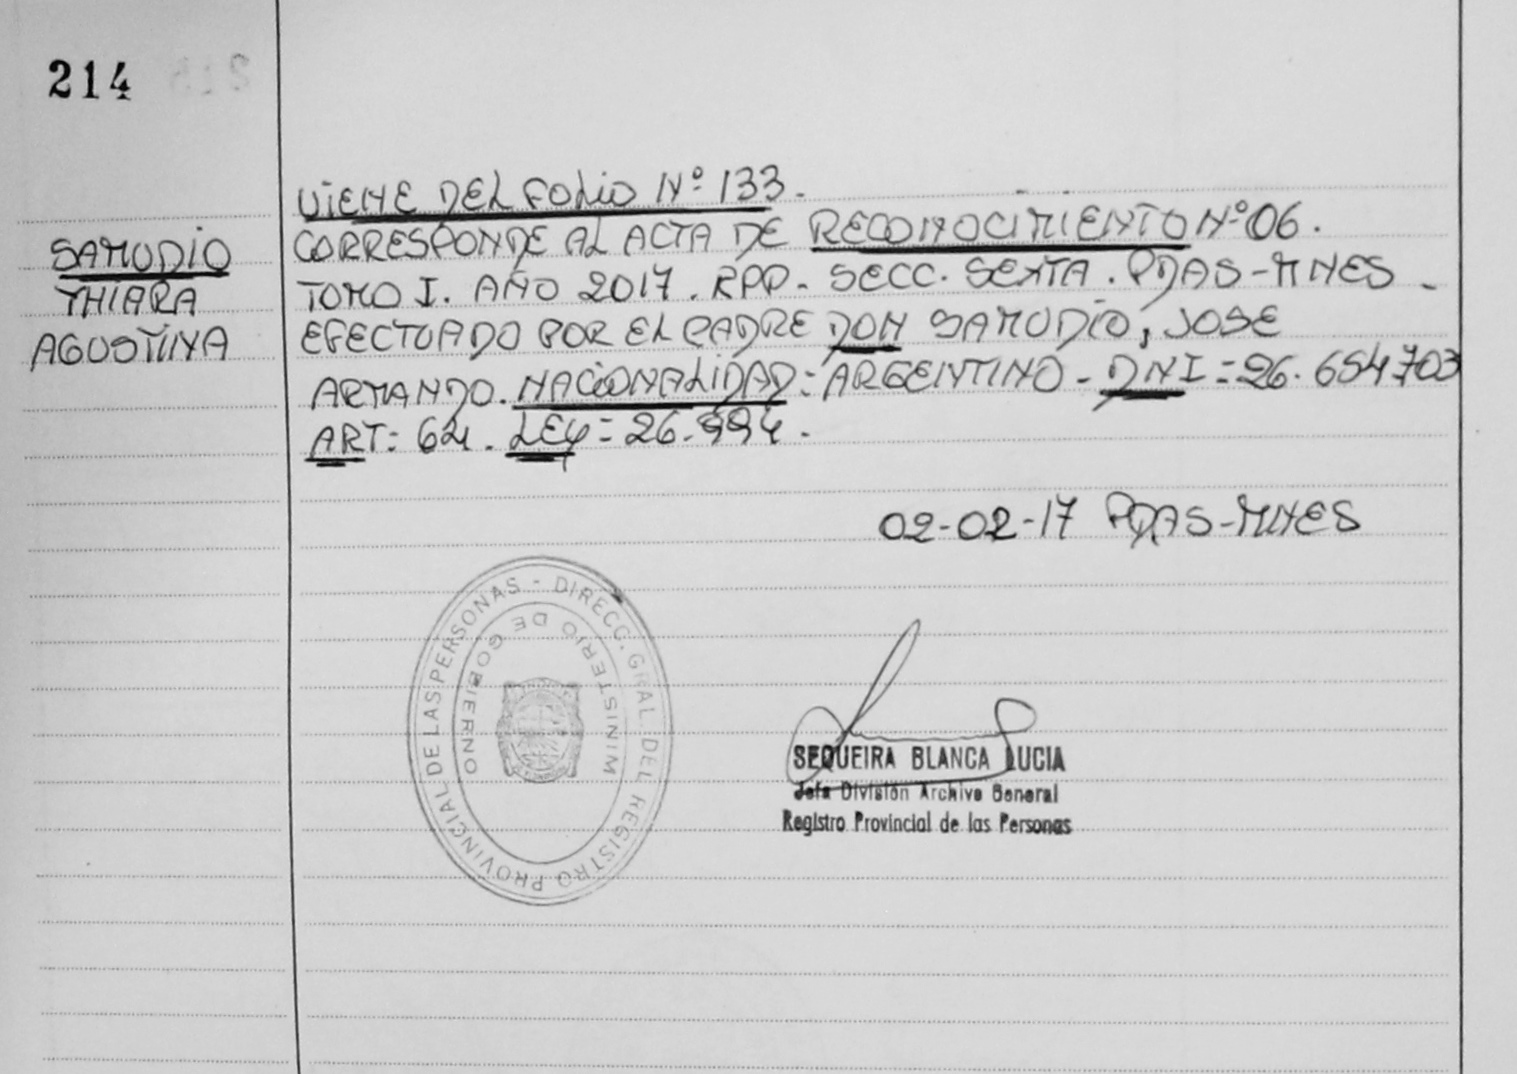 214
SAMUDIO
THIARA
AGUSTINA
VIENE DEL FOLIO Nº 133.
CORRESPONDE AL ACTA DE RECONOCIMIENTO Nº 06.
TOMO I. AÑO 2017. RPP. SECC. SEXTA. PDAS-MNES -
EFECTUADO POR EL PADRE DON SAMUDIO, JOSE
ARMANDO. NACIONALIDAD: ARGENTINO - DNI = 26.654703
ART: 64. LEY = 26.994.
02-02-17 PDAS-MNES
DIRECC. GRAL. DEL REGISTRO PROVINCIAL DE LAS PERSONAS -
MINISTERIO DE GOBIERNO
SEQUEIRA BLANCA LUCIA
Jefa División Archivo General
Registro Provincial de las Personas